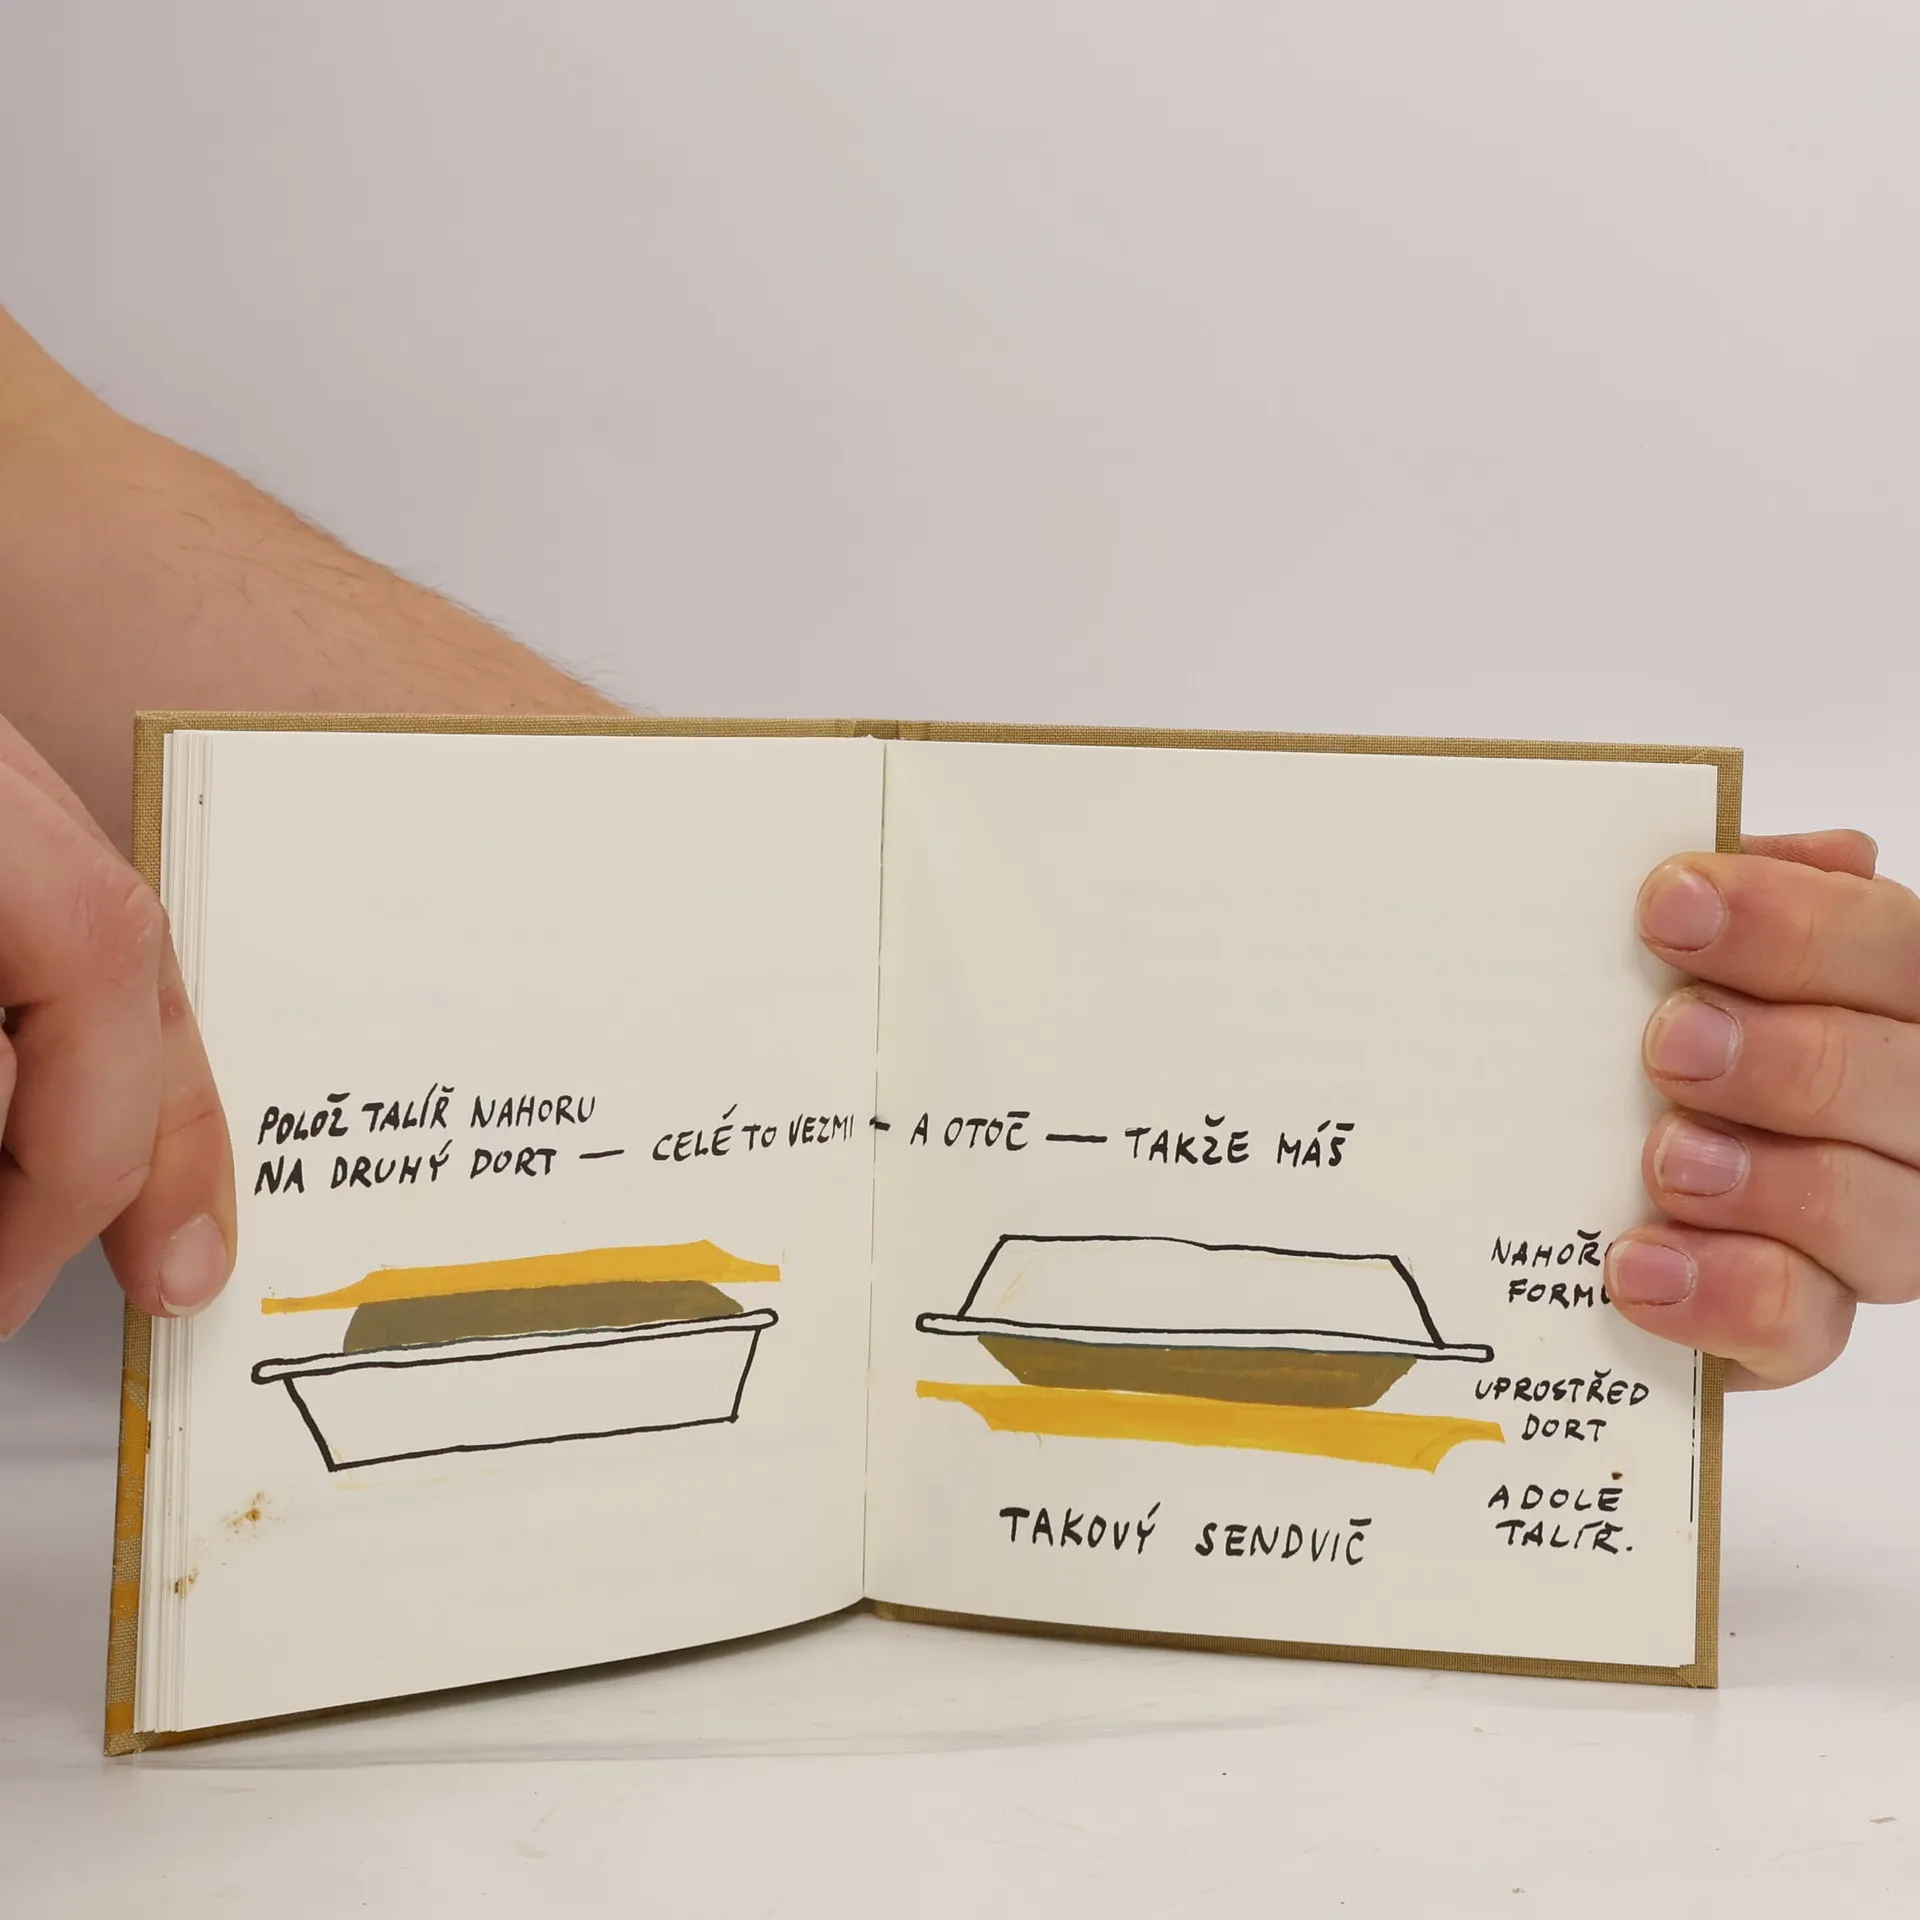 POLOŽ TALÍŘ NAHORU
NA DRUHÝ DORT — CELÉ TO VEZMI - A OTOČ — TAKŽE MÁŠ
UPROSTŘED
DORT
A DOLE
TALÍŘ.
TAKOVÝ SENDVIČ